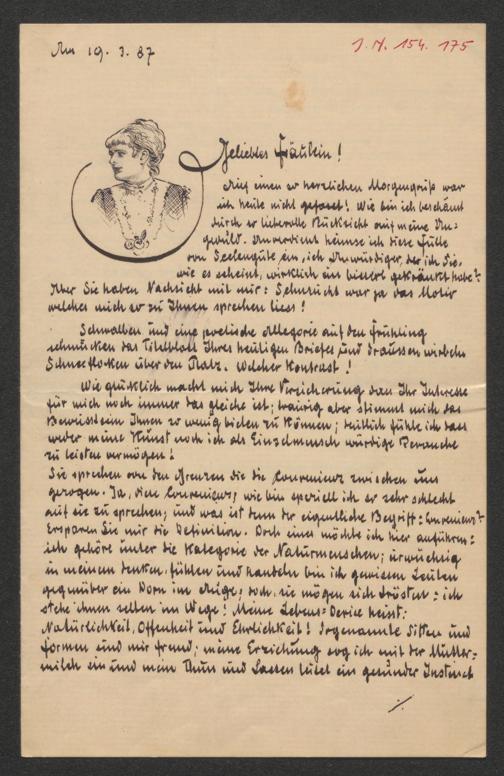 Am 19. 3. 87
J. N. 154. 175
Geliebtes Fräulein!
Auf einen so herzlichen Morgengruß war
ich heute nicht gefasst! Wie bin ich beschämt
durch so liebevolle Rücksicht auf meine Un-
geduld. Unverdient heimse ich diese Fülle
von Seelengüte ein, ich Unwürdiger, der ich Sie,
wie es scheint, wirklich ein bisserl gekränkt habe?
Aber Sie haben Nachsicht mit mir: Sehnsucht war ja das Motiv
welches mich so zu Ihnen sprechen liess!
Schwalben und eine poetische Allegorie auf den Frühling
schmücken das Titelblatt Ihres heutigen Briefes und draussen wirbeln
Schneeflocken über den Platz. Welcher Kontrast!
Wie glücklich macht mich Ihre Versicherung dass Ihr Interesse
für mich noch immer das gleiche ist; traurig aber stimmt mich das
Bewusstsein Ihnen so wenig bieten zu können; deutlich fühle ich dass
weder meine Kunst noch ich als Einzelmensch würdige Revanche
zu leisten vermögen!
Sie sprechen von den Grenzen die die Convenienz zwischen uns
gezogen. Ja, diese Convenienz, wie bin speciell ich so sehr schlecht
auf sie zu sprechen; und was ist denn der eigentliche Begriff: Convenienz?
Ersparen Sie mir die Definition. Doch eines möchte ich hier anführen:
ich gehöre unter die Kategorie der Naturmenschen; urwüchsig
in meinem denken, fühlen und handeln bin ich gewissen Leuten
gegenüber ein Dorn im Auge; doch, sie mögen sich trösten: ich
stehe ihnen selten im Wege! Meine Lebens-Devise heisst:
Natürlichkeit, Offenheit und Ehrlichkeit! Sogenannte Sitten und
Formen sind mir fremd; meine Erziehung sog ich mit der Mutter-
milch ein und mein Thun und Lassen leitet ein gesunder Instinct
./.